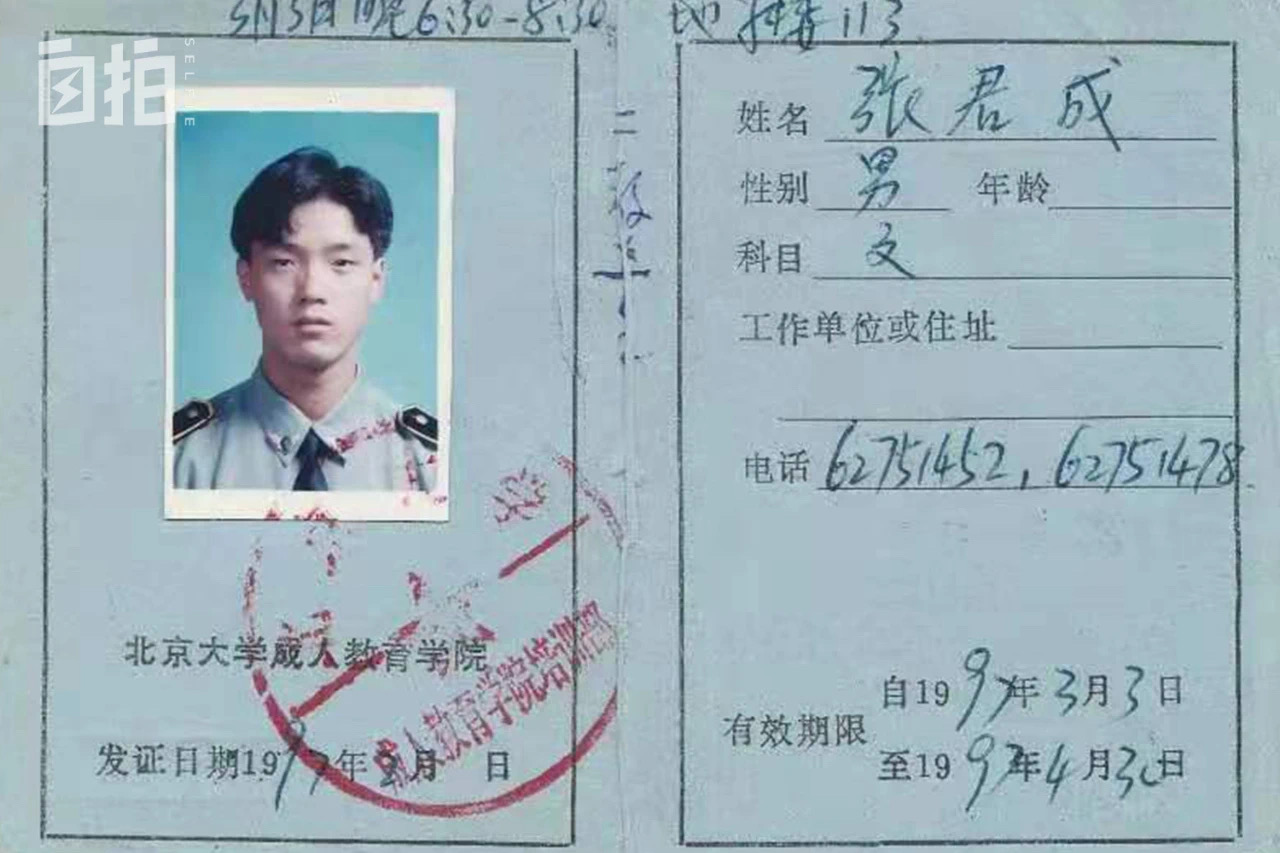 自拍
SELFIE
3月3日 晚6:30-8:30 地楼113
姓名 张君成
性别 男 年龄
科目 文
工作单位或住址
电话 62751452, 62751478
北京大学成人教育学院
成人教育学院培训部
发证日期1997年3月 日
有效期限
自1997年3月3日
至1997年4月30日